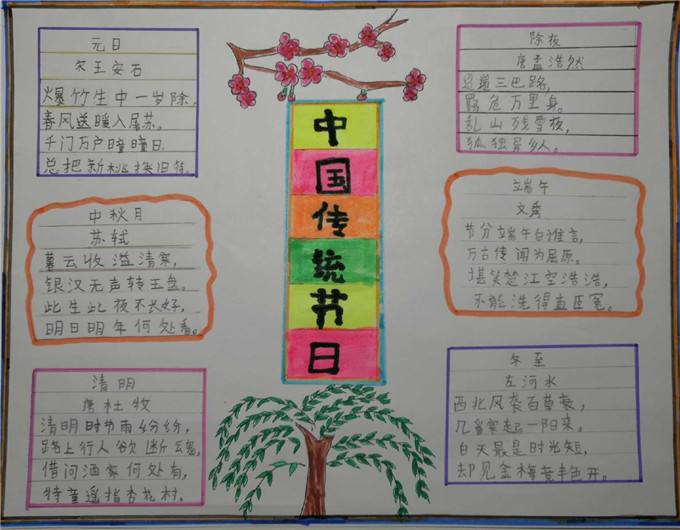 中国传统节日
元日
宋王安石
爆竹生中一岁除,
春风送暖入屠苏。
千门万户曈曈日,
总把新桃换旧符。
中秋月
苏轼
暮云收溢清寒,
银汉无声转玉盘。
此生此夜不长好,
明日明年何处看。
清明
唐杜牧
清明时节雨纷纷,
路上行人欲断魂。
借问酒家何处有,
牧童遥指杏花村。
除夜
唐孟浩然
迢递三巴路,
羁危万里身。
乱山残雪夜,
孤独异乡人。
端午
文秀
节分端午自谁言,
万古传闻为屈原。
堪笑楚江空浩浩,
不能洗得直臣冤。
冬至
左河水
西北风袭百草衰,
几番寒起一阳来。
白天最是时光短,
却见金梅竞艳开。